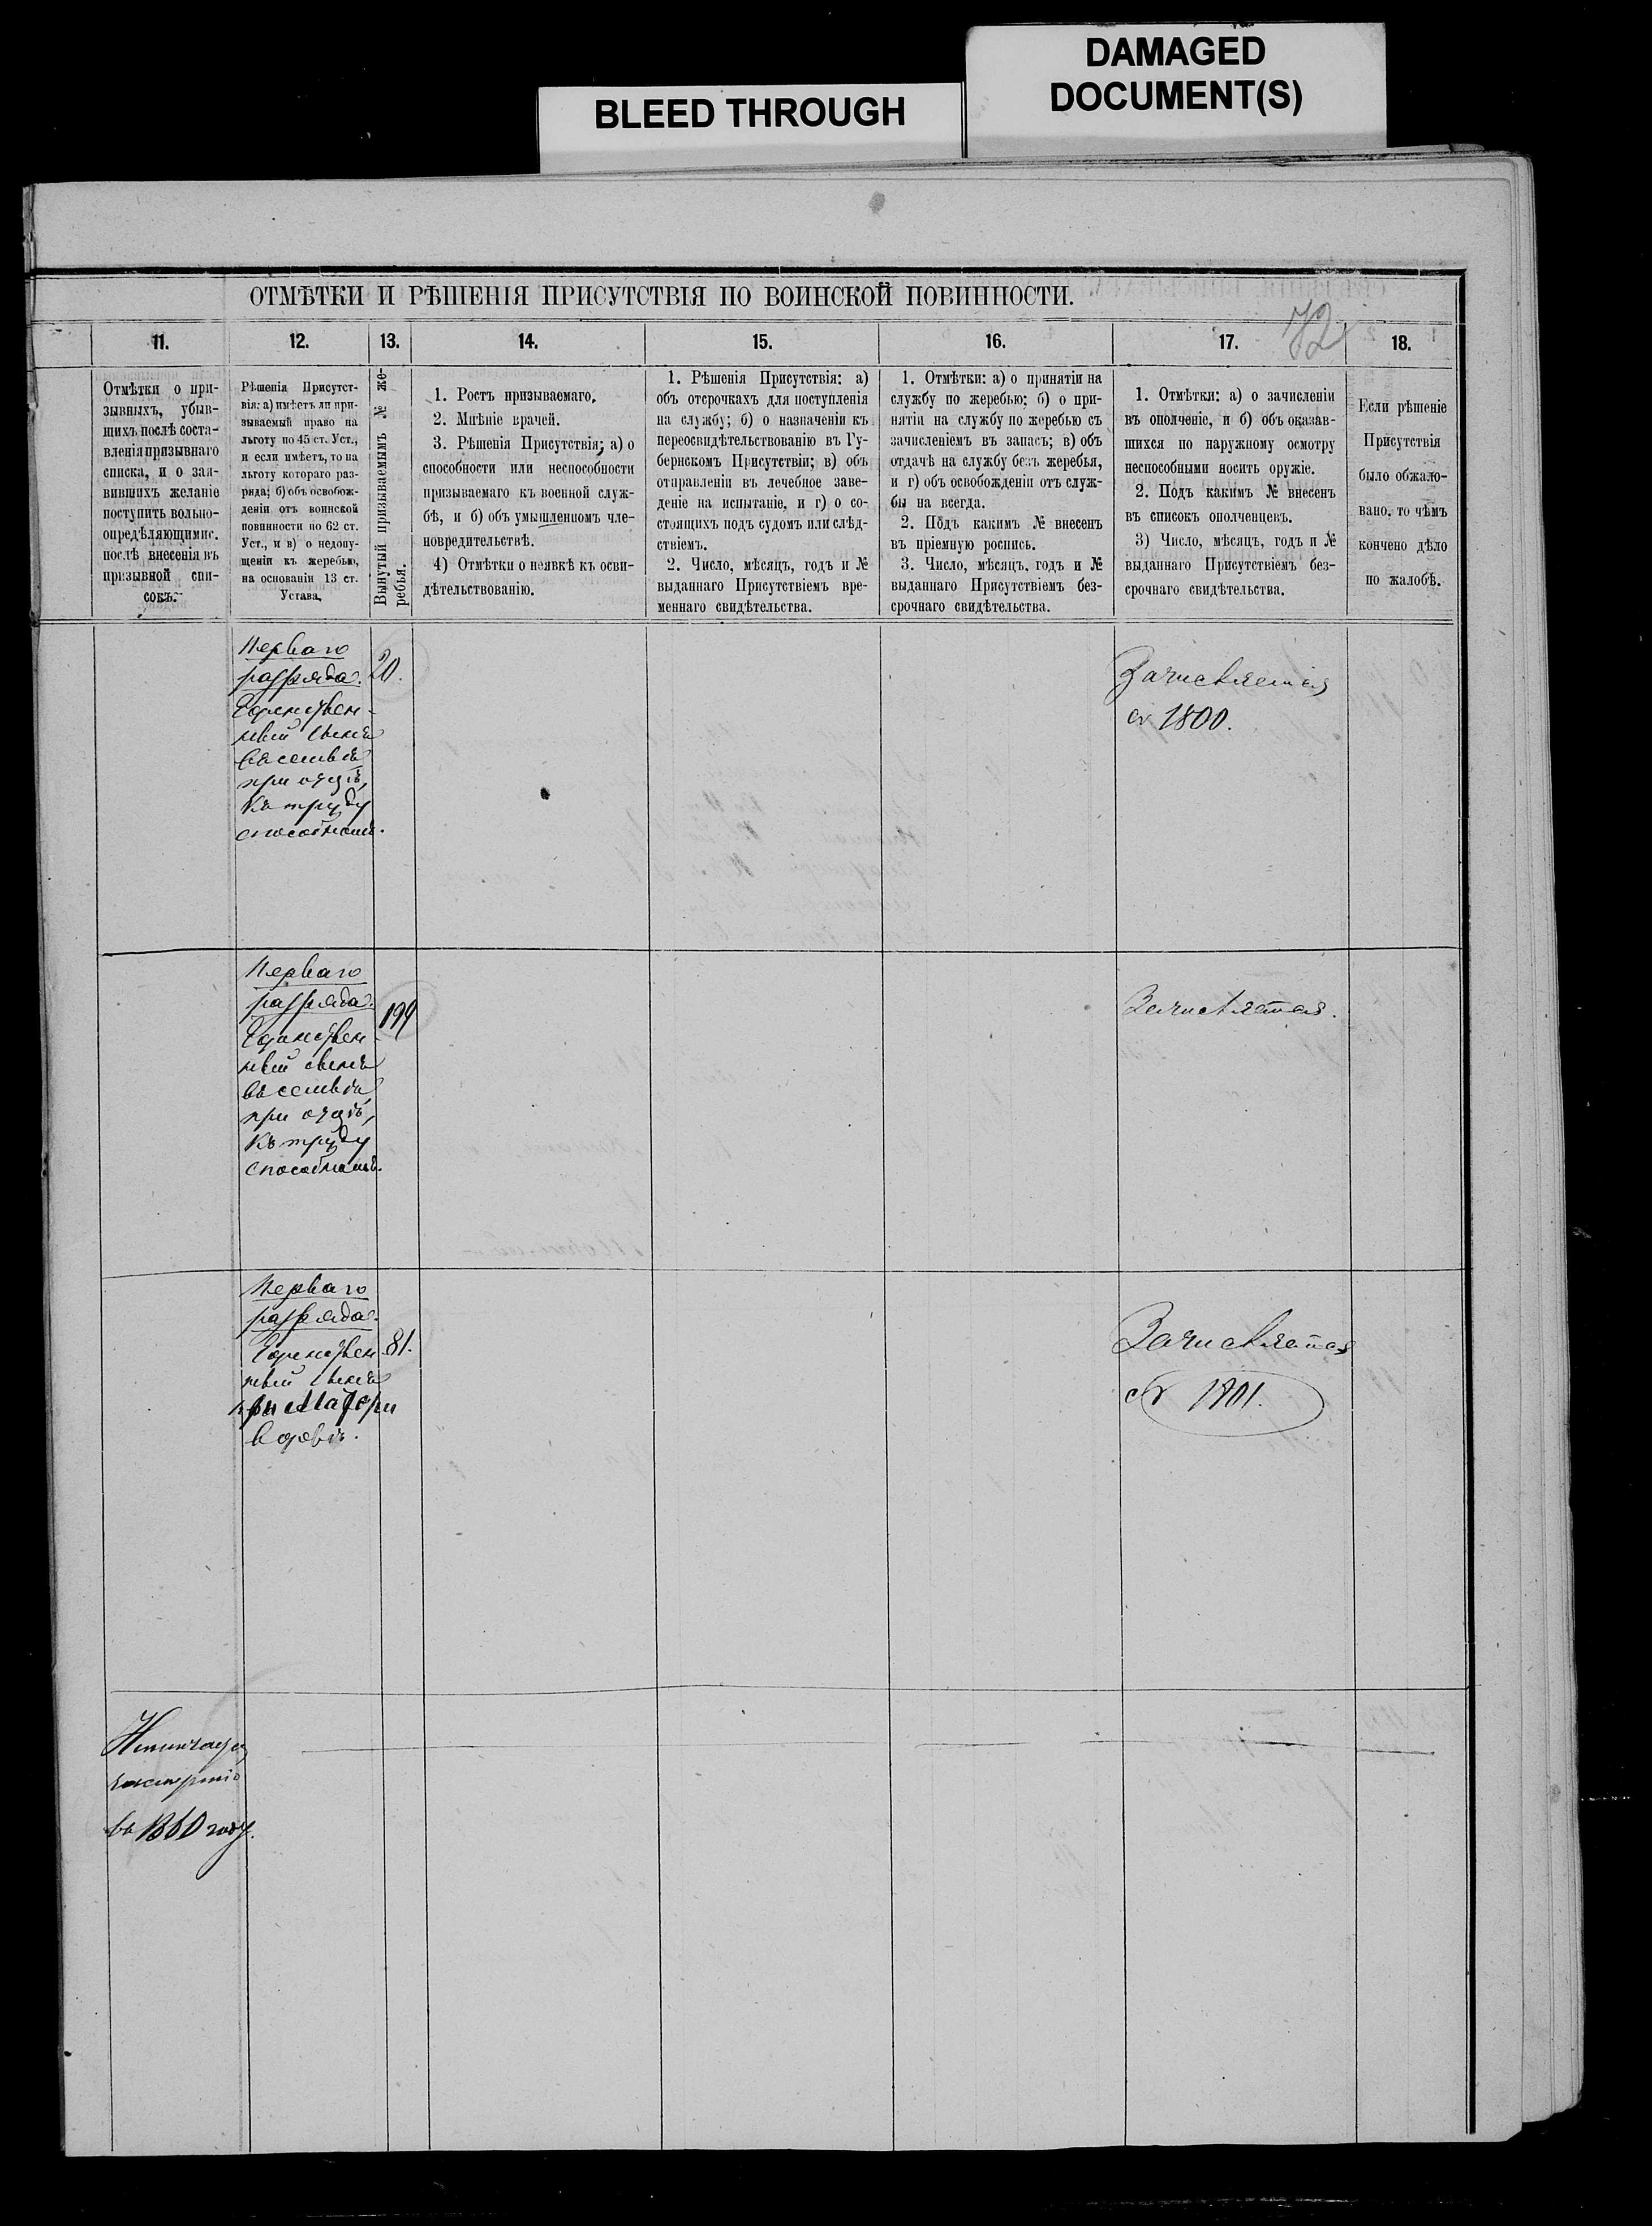 DAMAGED
DOCUMENT(S)
BLEED THROUGH
ОТМѢТКИ И РѢШЕНІЯ ПРИСУТСТВІЯ ПО ВОИНСКОЙ ПОВИННОСТИ.
72
11.
12.
13.
14.
15.
16.
17.
18.
Отмѣтки о при-
зывныхъ, убыв-
щихъ послѣ соста-
вленія призывнаго
списка, и о зая-
вившихъ желаніе
поступить вольно-
опредѣляющимис.
послѣ внесенія въ
призывной спи-
сокъ.
Рѣшенія Присутст-
вія: а) имѣетъ ли при-
зываемый право на
льготу по 45 ст. Уст.,
и если имѣетъ, то на
льготу котораго раз-
ряда; б) объ освобож-
деніи отъ воинской
повинности по 62 ст.
Уст., и в) о недопу-
щеніи къ жеребью,
на основаніи 13 ст.
Устава.
Вынутый призываемымъ № же-
ребья.
1. Ростъ призываемаго.
2. Мнѣніе врачей.
3. Рѣшенія Присутствія; а) о
способности или неспособности
призываемаго къ военной служ-
бѣ, и б) объ умышленномъ чле-
новредительствѣ.
4) Отмѣтки о неявкѣ къ осви-
дѣтельствованію.
1. Рѣшенія Присутствія: а)
объ отсрочкахъ для поступленія
на службу; б) о назначеніи къ
переосвидѣтельствованію въ Гу-
бернскомъ Присутствіи; в) объ
отправленіи въ лечебное заве-
деніе на испытаніе, и г) о со-
стоящихъ подъ судомъ или слѣд-
ствіемъ.
2. Число, мѣсяцъ, годъ и №
выданнаго Присутствіемъ вре-
меннаго свидѣтельства.
1. Отмѣтки: а) о принятіи на
службу по жеребью; б) о при-
нятіи на службу по жеребью съ
зачисленіемъ въ запасъ; в) объ
отдачѣ на службу безъ жеребья,
и г) объ освобожденіи отъ служ-
бы на всегда.
2. Подъ какимъ № внесенъ
въ пріемную роспись.
3. Число, мѣсяцъ, годъ и №
выданнаго Присутствіемъ без-
срочнаго свидѣтельства.
1. Отмѣтки: а) о зачисленіи
въ ополченіе, и б) объ оказав-
шихся по наружному осмотру
неспособными носить оружіе.
2. Подъ какимъ № внесенъ
въ списокъ ополченцевъ.
3) Число, мѣсяцъ, годъ и №
выданнаго Присутствіемъ без-
срочнаго свидѣтельства.
Если рѣшеніе
Присутствія
было обжало-
вано, то чѣмъ
кончено дѣло
по жалобѣ.
Перваго
разряда.
Единствен-
ный сынъ
въ семьѣ
при отцѣ,
къ труду
способномъ.
20.
Зачисляется
1800.
Перваго
разряда.
Единствен-
ный сынъ
въ семьѣ
при отцѣ,
къ труду
способномъ.
199
Зачисляется.
Перваго
разряда.
Единствен
ный сынъ
при Матери
вдовѣ.
81.
Зачисляется
1801.
въ 1860 году.